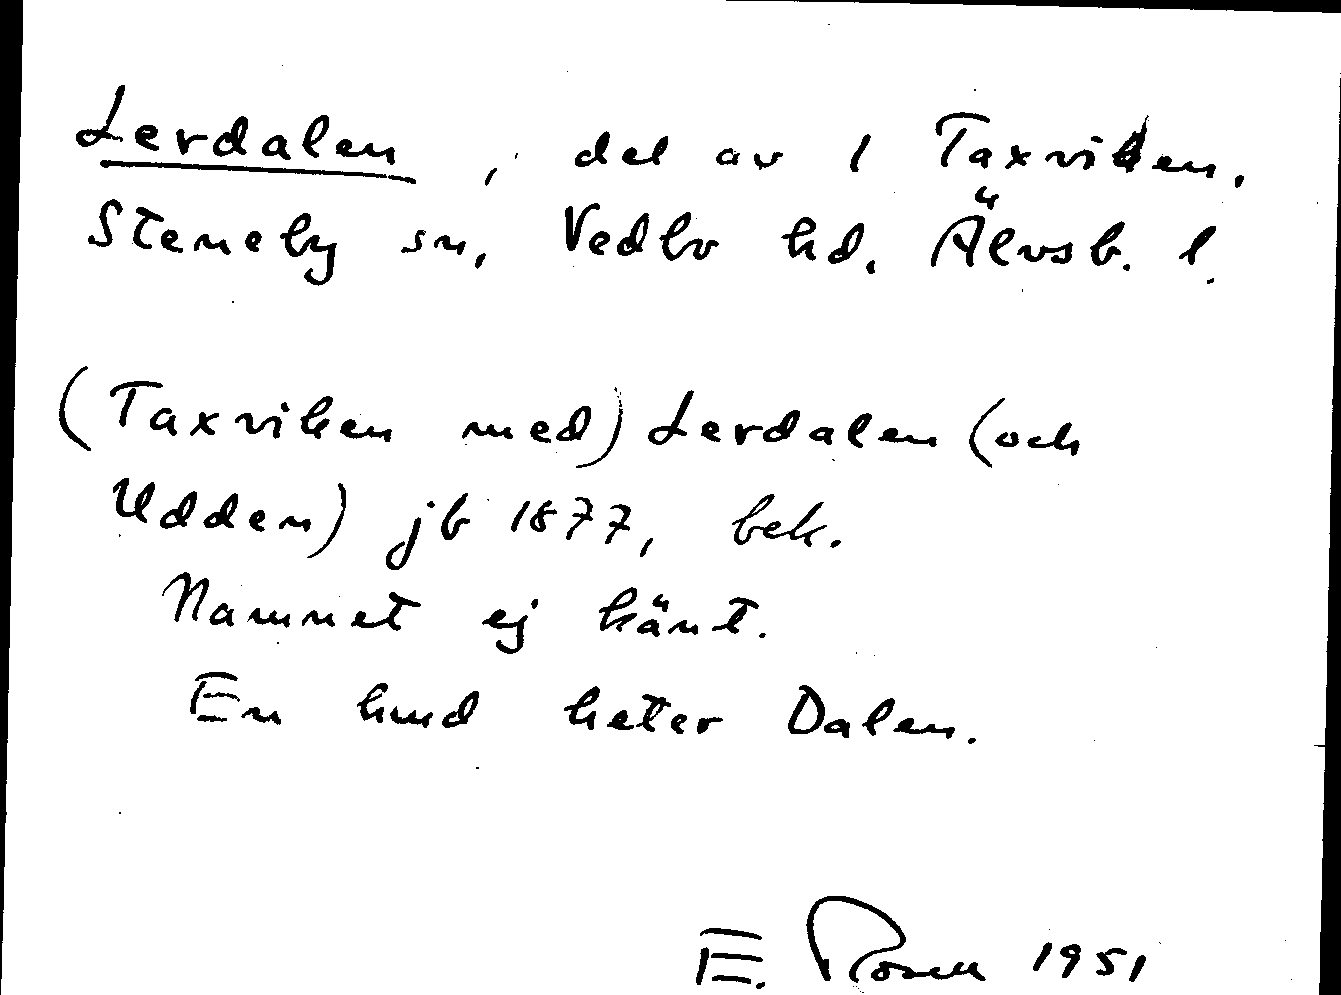 Lerdalen, del av 1 Taxviken,
Steneby sn, Vedbo hd. Älvsb. l.
(Taxviken med) Lerdalen (och
Udden) jb 1877, bek.
Namnet ej känt.
En hund heter Dalen.
E. Rosell 1951